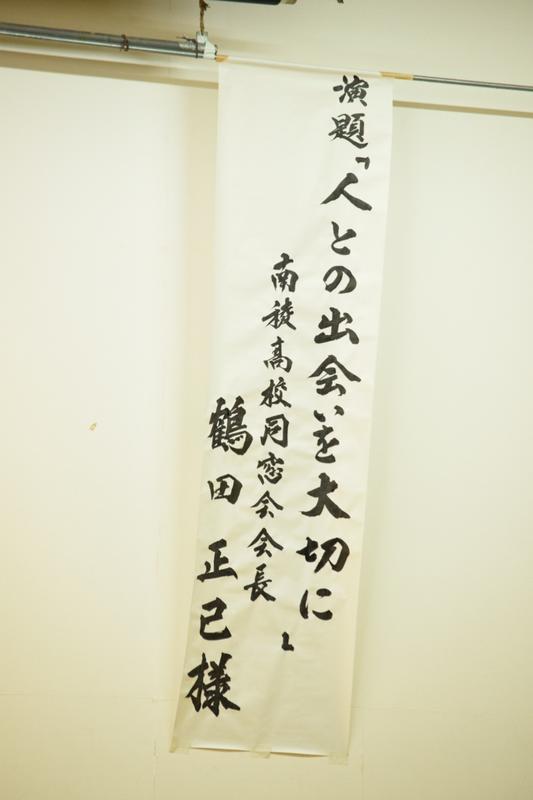 演題「人との出会いを大切に」
南稜高校同窓会会長
鶴田正己様